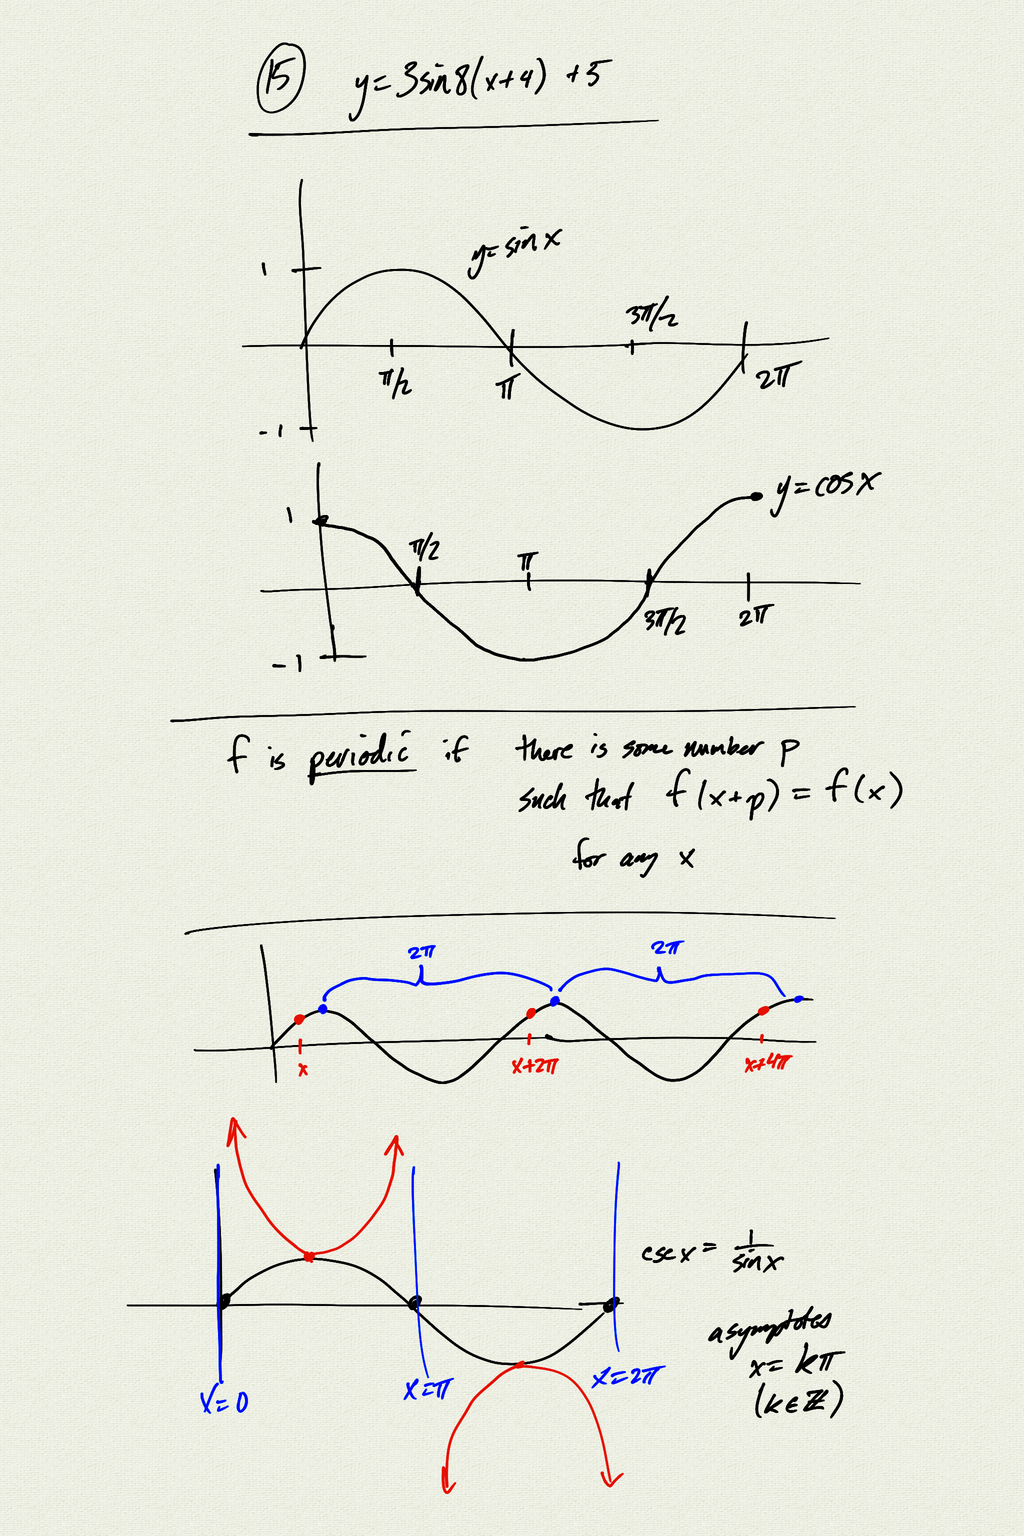 15 y=3sin8(x+4) +5
y=sinx
1
3π/2
π/2
π
2π
-1
y=cosx
1
π/2
π
3π/2
2π
-1
f is periodic if there is some number p
such that f(x+p) = f(x)
for any x
2π 2π
x x+2π x+4π
cscx = 1/sinx
asymptotes
x=kπ
(k∈ℤ)
x=0 x=π x=2π